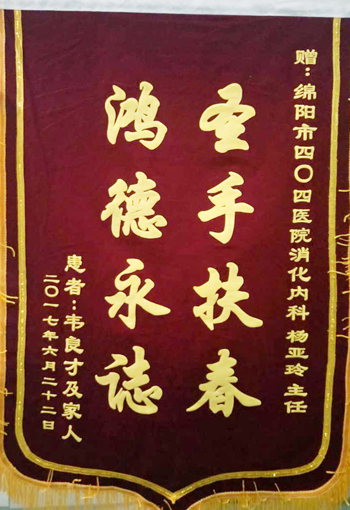 赠：绵阳市四〇四医院消化内科 杨亚玲主任
圣手扶春
鸿德永誌
患者：韦良才及家人
二〇一七年六月二十二日